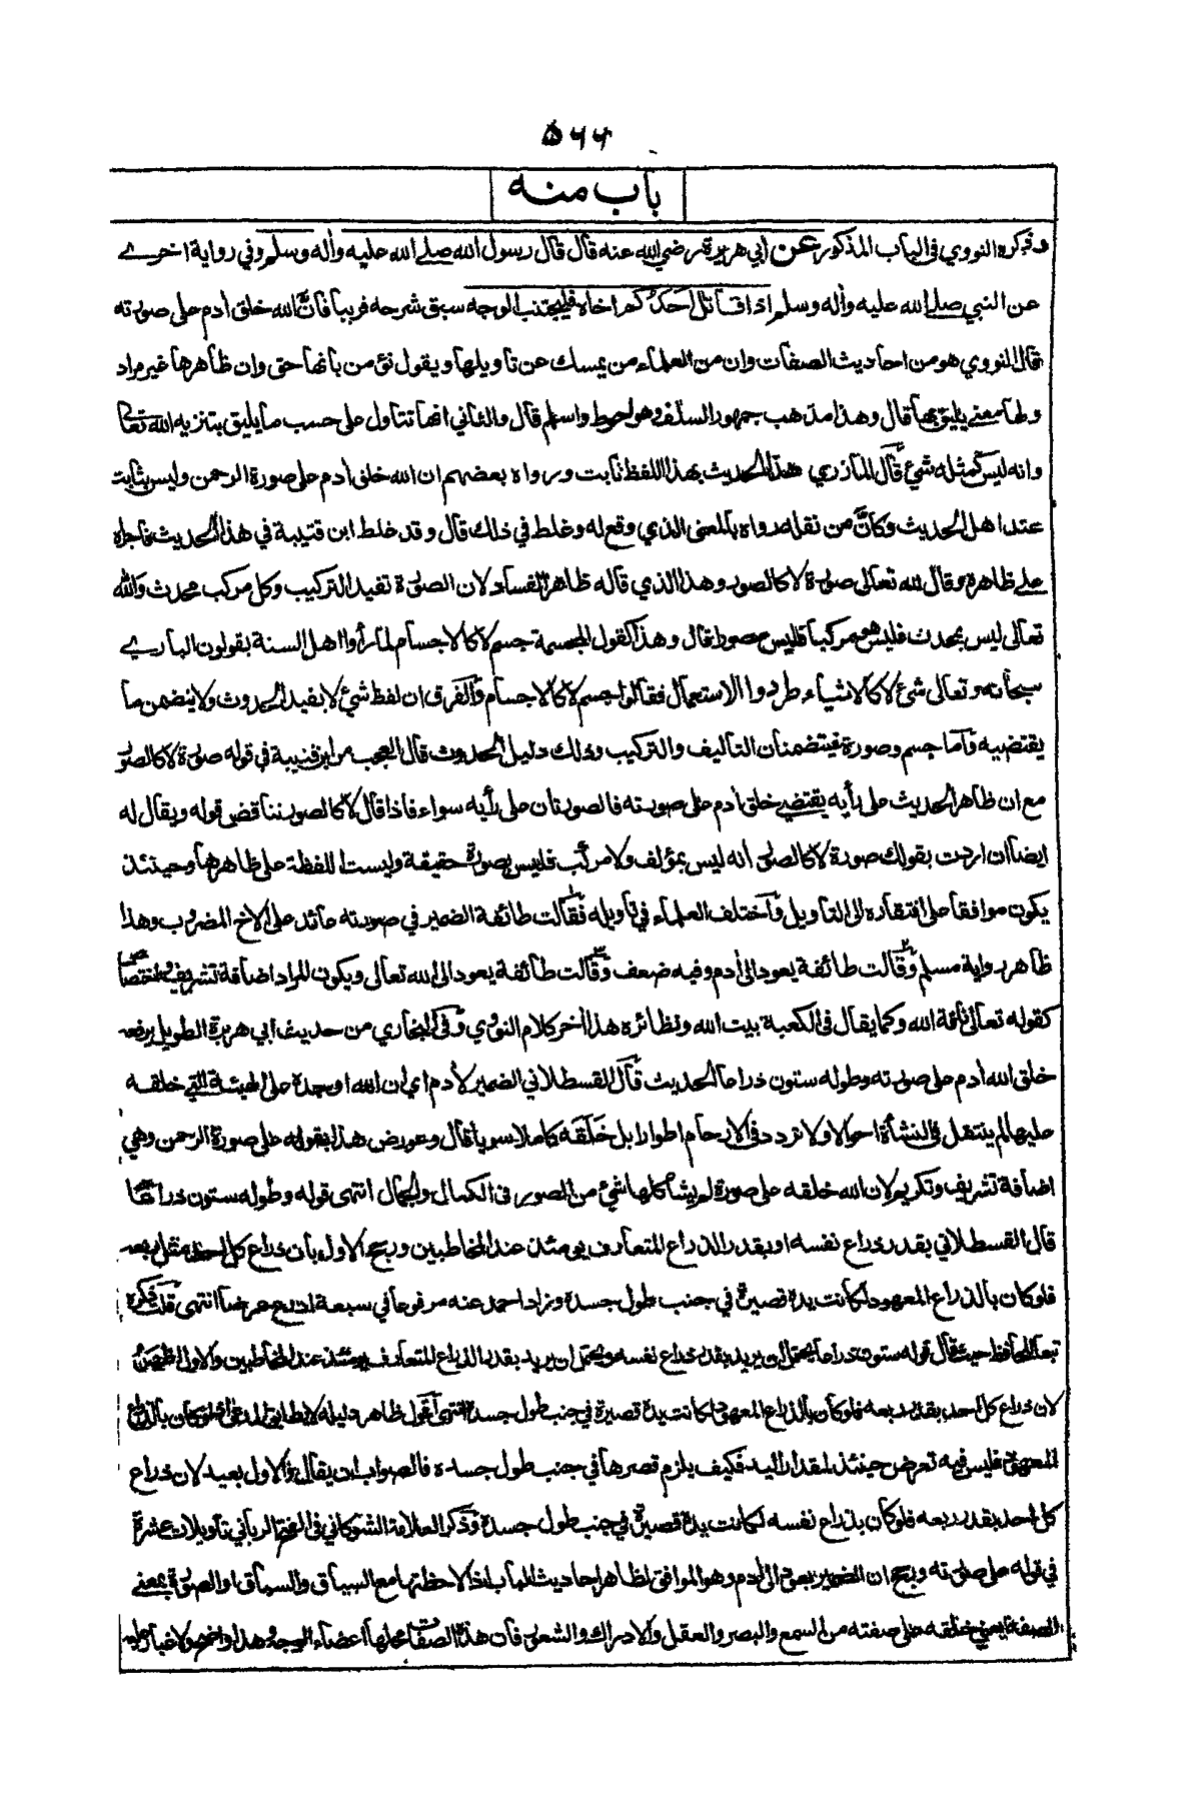 ۵۶۶
باب منه
وذكره النووي فى الباب المذكور عن أبي هريرة رضي الله عنه قال قال رسول الله صلے الله عليه وأله وسلم وفي رواية اخرے
عن النبي صلے الله عليه وأله وسلم اذا قاتل أحدكم اخاه فليجتنب الوجه سبق شرحه قريبا فان الله خلق أدم على صورته
قال النووي هو من احاديث الصفات وان من العلماء من يمسك عن تأويلها ويقول نؤمن بأنها حق وان ظاهرها غير مراد
ولها معنے يليق بها قال وهذا مذهب جمهور السلف وهو احوط واسلم قال والثاني انها تتاول على حسب ما يليق بتنزيه الله تعالى
وانه ليس كمثله شيء قال المازري هذا الحديث بهذا اللفظ ثابت ورواه بعضهم ان الله خلق أدم على صورة الرحمن وليس بثابت
عند اهل الحديث وكأن من نقله رواه بالمعنى الذي وقع له وغلط في ذلك قال وقد غلط ابن قتيبة في هذا الحديث فاجراه
على ظاهره وقال لله تعالى صورة لا كالصور وهذا الذي قاله ظاهر الفساد لان الصورة تفيد التركيب وكل مركب محدث والله
تعالى ليس بمحدث فليس هو مركبا فليس مصورا قال وهذا كقول المجسمة جسم لا كالاجسام لما رأوا اهل السنة يقولون الباري
سبحانه وتعالى شئ لا كالاشياء طردوا الاستعمال فقالوا جسم لا كالاجسام والفرق ان لفظ شئ لا يفيد الحدوث ولا يتضمن ما
يقتضيه وأما جسم وصورة فيتضمنان التأليف والتركيب وذلك دليل الحدوث قال العجب من ابن قتيبة في قوله صورة لا كالصور
مع ان ظاهر الحديث على رأيه يقتضي خلق أدم على صورته فالصورتان على رأيه سواء فاذا قال لا كالصور تناقض قوله ويقال له
ايضا ان اردت بقولك صورة لا كالصور انه ليس بمؤلف ولا مركب فليس بصورة حقيقة وليست اللفظة على ظاهرها وحينئذ
يكون موافقا على افتقاره الى التأويل واختلف العلماء في تأويله فقالت طائفة الضمير في صورته عائد على الاخ المضروب وهذا
ظاهر رواية مسلم وقالت طائفة يعود الى أدم وفيه ضعف وقالت طائفة يعود الى الله تعالى ويكون المراد اضافة تشريف واختصاص
كقوله تعالى ناقة الله وكما يقال فى الكعبة بيت الله ونظائره هذا أخر كلام النووي وفى البخاري من حديث ابي هريرة الطويل يرفعه
خلق الله ادم على صورته وطوله ستون ذراعا الحديث قال القسطلاني الضمير لأدم اي ان الله اوجده على الهيئة التي خلقه
عليها لم ينتقل فى النشأة احوالا ولا تردد فى الارحام اطوارا بل خلقه كاملا سويا قال وعورض هذا بقوله على صورة الرحمن وهي
اضافة تشريف وتكريم لان الله خلقه على صورة لم يشاكلها شئ من الصور فى الكمال والجمال انتهى قوله وطوله ستون ذراعا
قال القسطلاني بقدر ذراع نفسه او بقدر الذراع المتعارف يومئذ عند المخاطبين ورجح الاول بأن ذراع كل احد مثل ربعه
فلو كان بالذراع المعهود لكانت يده قصيرة في جنب طول جسده وزاد احمد عنه مرفوعا في سبعة اذرع عرضا انتهى قلت ذكره
تبعا للحافظ حيث قال قوله ستون ذراعا يحتمل ان يريد بقدر ذراع نفسه ويحتمل ان يريد بقدر الذراع المتعارف يومئذ عند المخاطبين والاول اظهر
لان ذراع كل احد بقدر ربعه فلو كان بالذراع المعهود لكانت يده قصيرة في جنب طول جسده انتهى أقول ظاهر دليله لا يطابق المدعى فلو كان بالذراع
المعهود فليس فيه تعرض حينئذ لمقدار اليد فكيف يلزم قصرها في جنب طول جسده فالصواب ان يقال والاول بعيد لان ذراع
كل احد بقدر ربعه فلو كان بذراع نفسه لكانت يده قصيرة في جنب طول جسده وذكر العلامة الشوكاني فى الفتح الرباني تأويلات عشرة
في قوله على صورته ورجح ان الضمير يعود الى أدم وهو الموافق لظاهر احاديث الباب اذا لاحظتها مع السياق والسباق او الصورة بمعنے
الصفة يعني خلقه على صفته من السمع والبصر والعقل والادراك والشعور فان هذه الصفات محلها أعضاء الوجه وهذا واضح لا غبار عليه